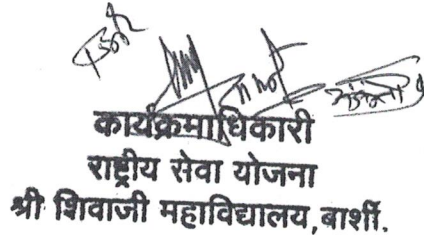 कार्यक्रमाधिकारी
राष्ट्रीय सेवा योजना
श्री शिवाजी महाविद्यालय, बार्शी.